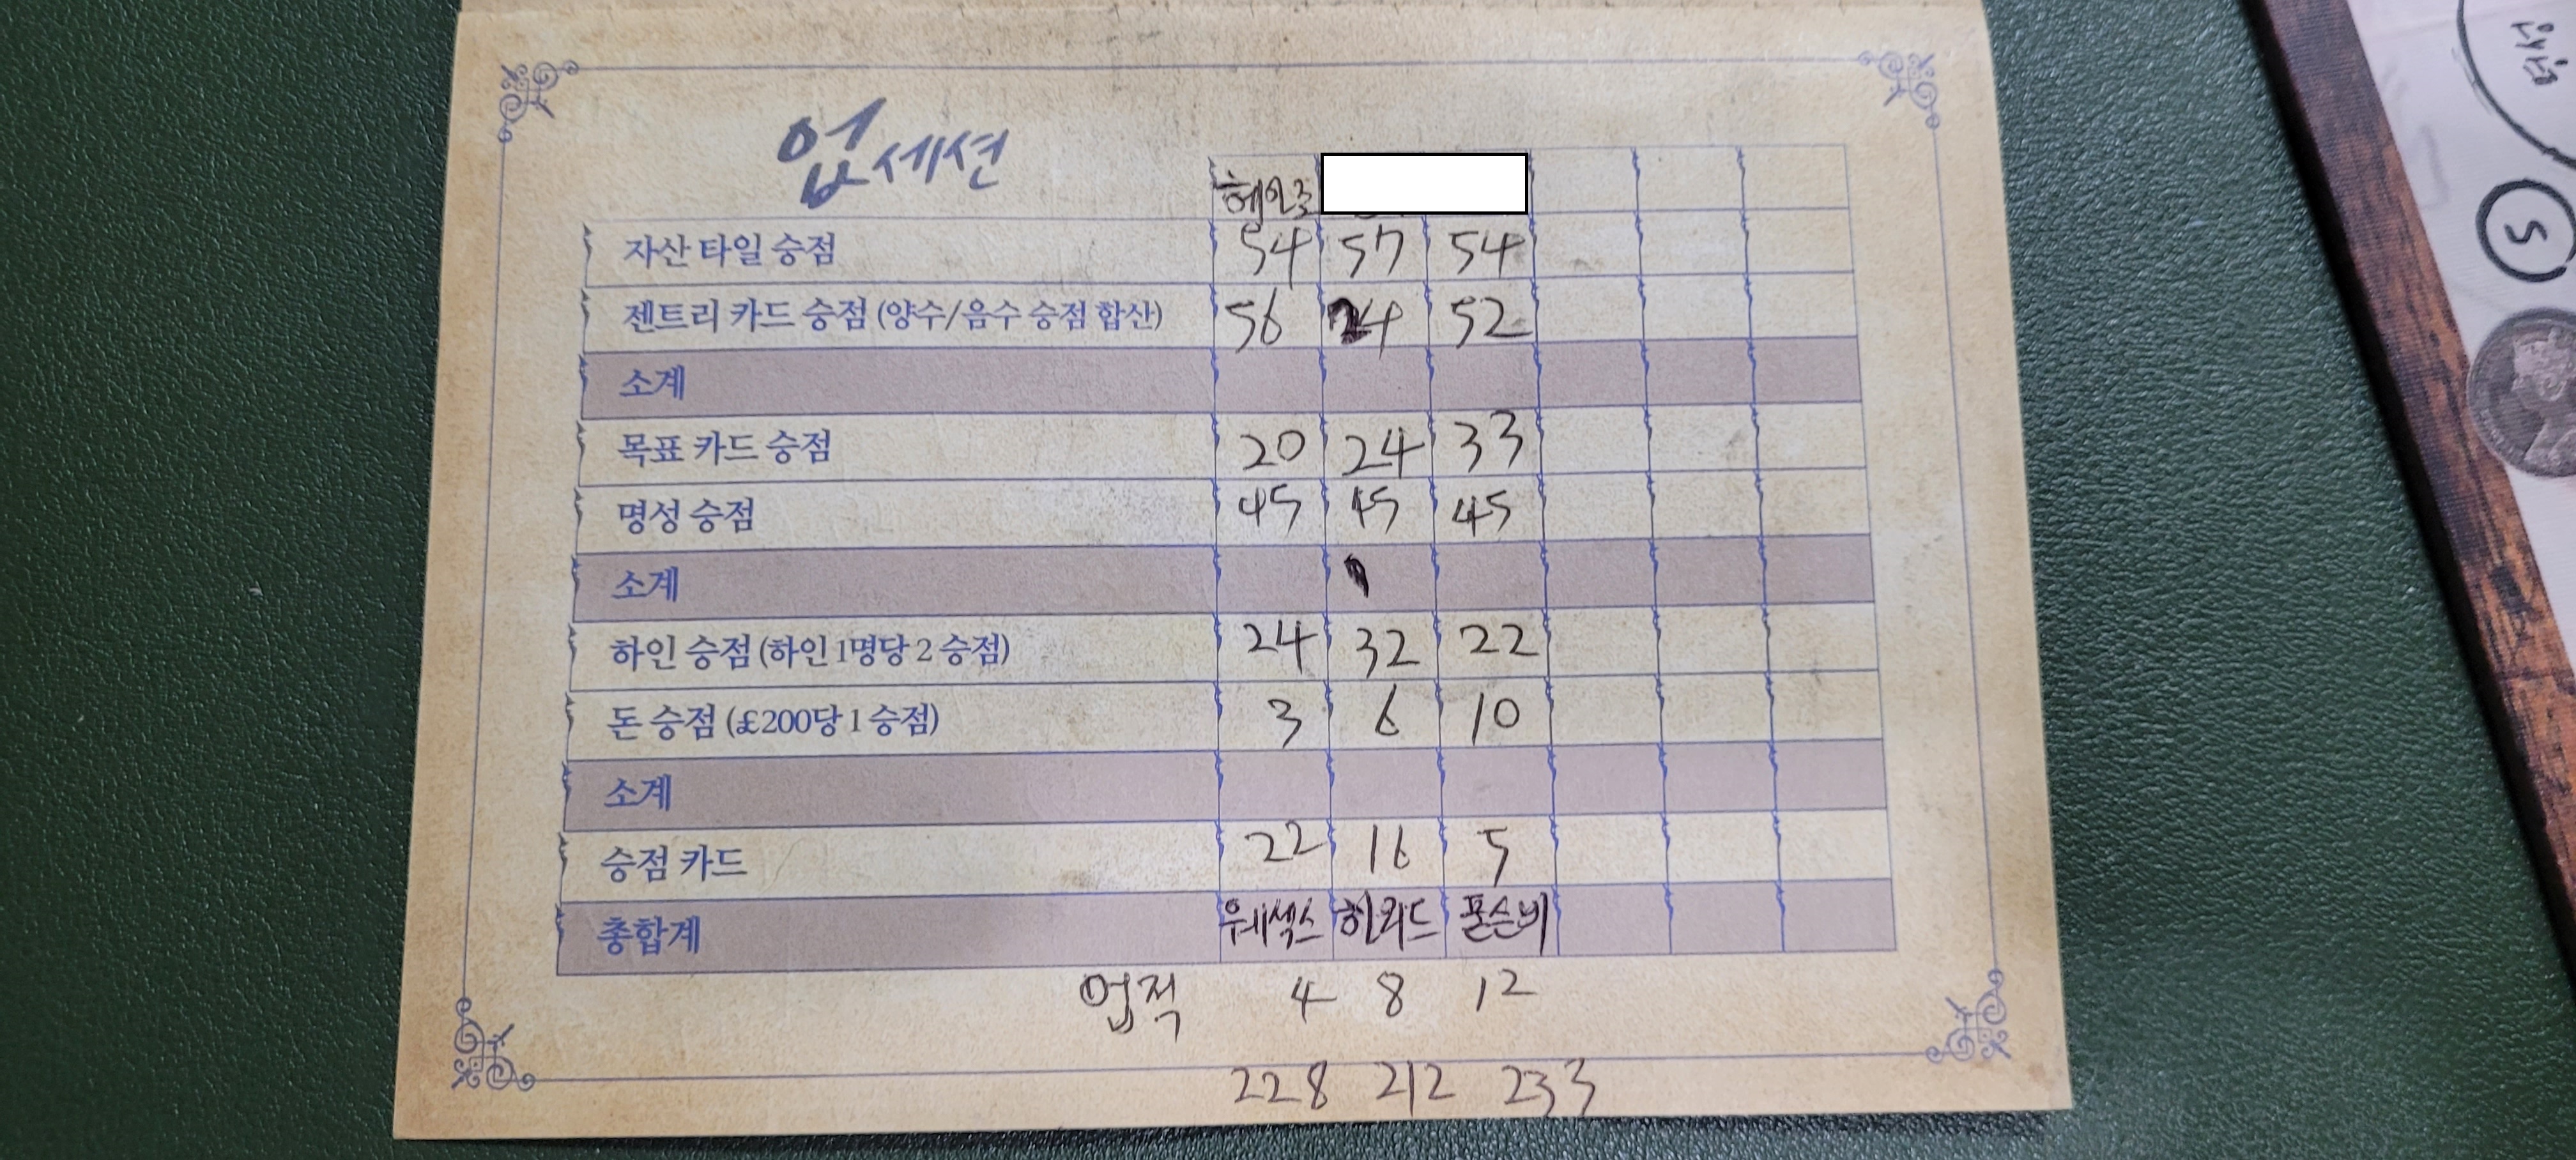 업세션
헤일로
자산 타일 승점 54 57 54
젠트리 카드 승점 (양수/음수 승점 합산) 56 24 52
소계
목표 카드 승점 20 24 33
명성 승점 45 45 45
소계
하인 승점 (하인 1명당 2 승점) 24 32 22
돈 승점 (£200당 1 승점) 3 6 10
소계
승점 카드 22 16 5
총합계 웨섹스 폰슨비
업적 4 8 12
228 212 233
5